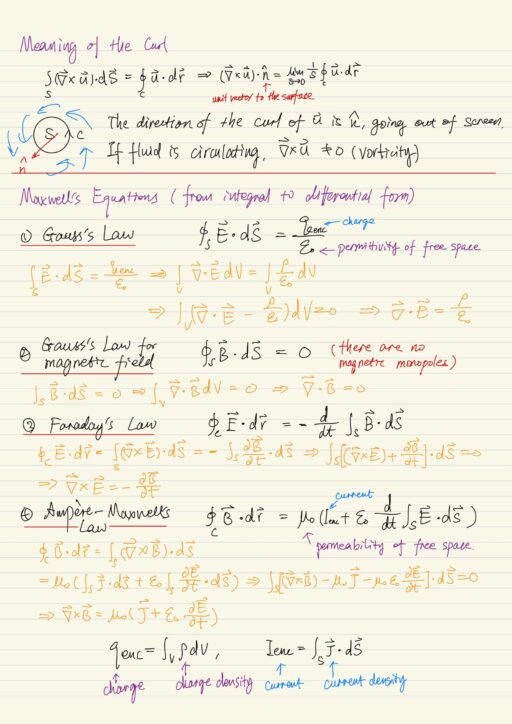 Meaning of the Curl
∫_S (∇⃗×u⃗)·dS⃗ = ∮_C u⃗·dr⃗ ⇒ (∇⃗×u⃗)·n̂ = lim_{S→0} 1/S ∮_C u⃗·dr⃗
unit vector to the surface
S C
n̂
The direction of the curl of u⃗ is n̂, going out of screen.
If fluid is circulating, ∇⃗×u⃗ ≠ 0 (vorticity)
Maxwell's Equations (from integral to differential form)
① Gauss's Law ∮_S E⃗·dS⃗ = q_enc/ε₀ ← charge
← permittivity of free space
∫_S E⃗·dS⃗ = q_enc/ε₀ ⇒ ∫_V ∇⃗·E⃗ dV = ∫_V ρ/ε₀ dV
⇒ ∫_V (∇⃗·E⃗ - ρ/ε₀) dV = 0 ⇒ ∇⃗·E⃗ = ρ/ε₀
② Gauss's Law for magnetic field ∮_S B⃗·dS⃗ = 0 (there are no magnetic monopoles)
∫_S B⃗·dS⃗ = 0 ⇒ ∫_V ∇⃗·B⃗ dV = 0 ⇒ ∇⃗·B⃗ = 0
③ Faraday's Law ∮_C E⃗·dr⃗ = - d/dt ∫_S B⃗·dS⃗
∮_C E⃗·dr⃗ = ∫_S (∇⃗×E⃗)·dS⃗ = - ∫_S ∂B⃗/∂t·dS⃗ ⇒ ∫_S [(∇⃗×E⃗) + ∂B⃗/∂t]·dS⃗ = 0
⇒ ∇⃗×E⃗ = - ∂B⃗/∂t
④ Ampère-Maxwell's Law ∮_C B⃗·dr⃗ = μ₀(I_enc + ε₀ d/dt ∫_S E⃗·dS⃗)
current
permeability of free space
∮_C B⃗·dr⃗ = ∫_S (∇⃗×B⃗)·dS⃗
= μ₀(∫_S J⃗·dS⃗ + ε₀ ∫_S ∂E⃗/∂t·dS⃗) ⇒ ∫_S [(∇⃗×B⃗) - μ₀J⃗ - μ₀ε₀ ∂E⃗/∂t]·dS⃗ = 0
⇒ ∇⃗×B⃗ = μ₀(J⃗ + ε₀ ∂E⃗/∂t)
q_enc = ∫_V ρ dV, I_enc = ∫_S J⃗·dS⃗
charge charge density current current density